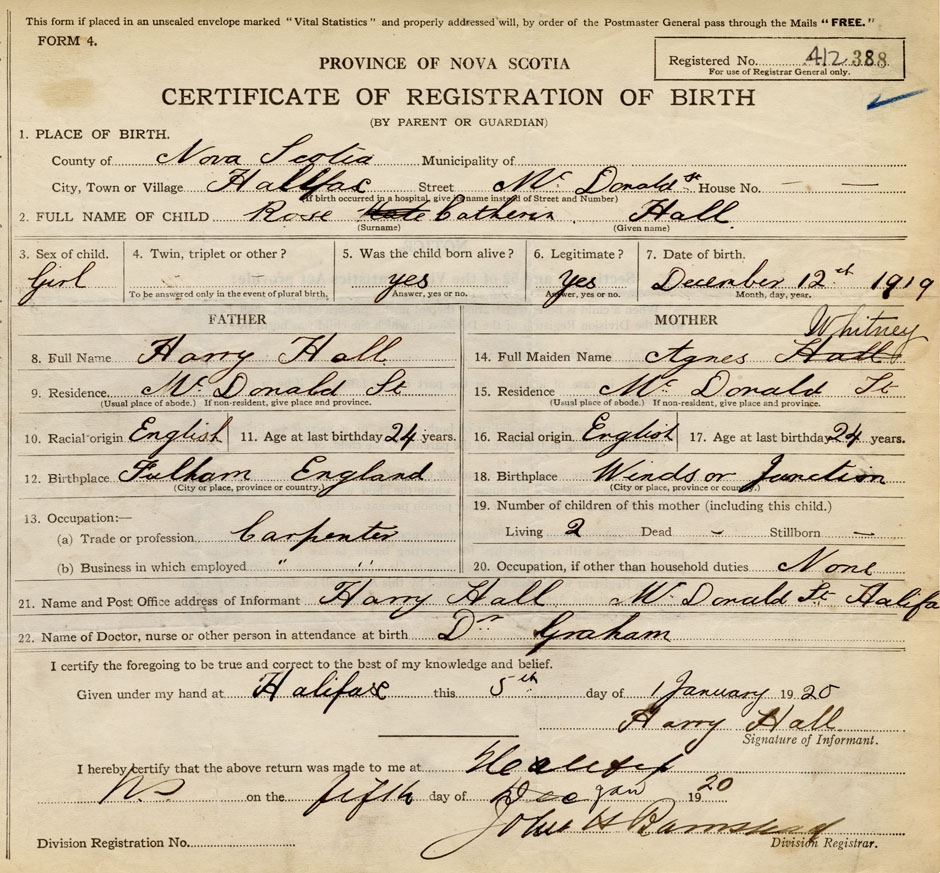 This form if placed in an unsealed envelope marked "Vital Statistics" and properly addressed will, by order of the Postmaster General pass through the Mails "FREE."
FORM 4.
Registered No. 412 388
For use of Registrar General only.
PROVINCE OF NOVA SCOTIA
CERTIFICATE OF REGISTRATION OF BIRTH
(BY PARENT OR GUARDIAN)
1. PLACE OF BIRTH.
County of Nova Scotia Municipality of
City, Town or Village Halifax Street Mc Donald St House No. — —
(If birth occurred in a hospital, give its name instead of Street and Number)
2. FULL NAME OF CHILD Rose Kate Catherin Hall
(Surname) (Given name)
3. Sex of child. 4. Twin, triplet or other? 5. Was the child born alive? 6. Legitimate? 7. Date of birth.
Girl yes Yes December 12th 1919
To be answered only in the event of plural birth. Answer, yes or no. Answer, yes or no. Month, day, year.
FATHER
8. Full Name Harry Hall
9. Residence Mc Donald St
(Usual place of abode.) If non-resident, give place and province.
10. Racial origin English 11. Age at last birthday 24 years.
12. Birthplace Fulham England
(City or place, province or country.)
13. Occupation:—
(a) Trade or profession Carpenter
(b) Business in which employed " "
MOTHER
Whitney
14. Full Maiden Name Agnes Hall
15. Residence Mc Donald St
(Usual place of abode.) If non-resident, give place and province.
16. Racial origin English 17. Age at last birthday 24 years.
18. Birthplace Windsor Junction
(City or place, province or country.)
19. Number of children of this mother (including this child.)
Living 2 Dead - Stillborn —
20. Occupation, if other than household duties None
21. Name and Post Office address of Informant Harry Hall Mc Donald St Halifa
22. Name of Doctor, nurse or other person in attendance at birth Dr Graham
I certify the foregoing to be true and correct to the best of my knowledge and belief.
Given under my hand at Halifax this 5th day of January 1920
Harry Hall
Signature of Informant.
I hereby certify that the above return was made to me at Halifax
NS on the fifth day of Dec Jan 1920
John H
Division Registration No. Division Registrar.